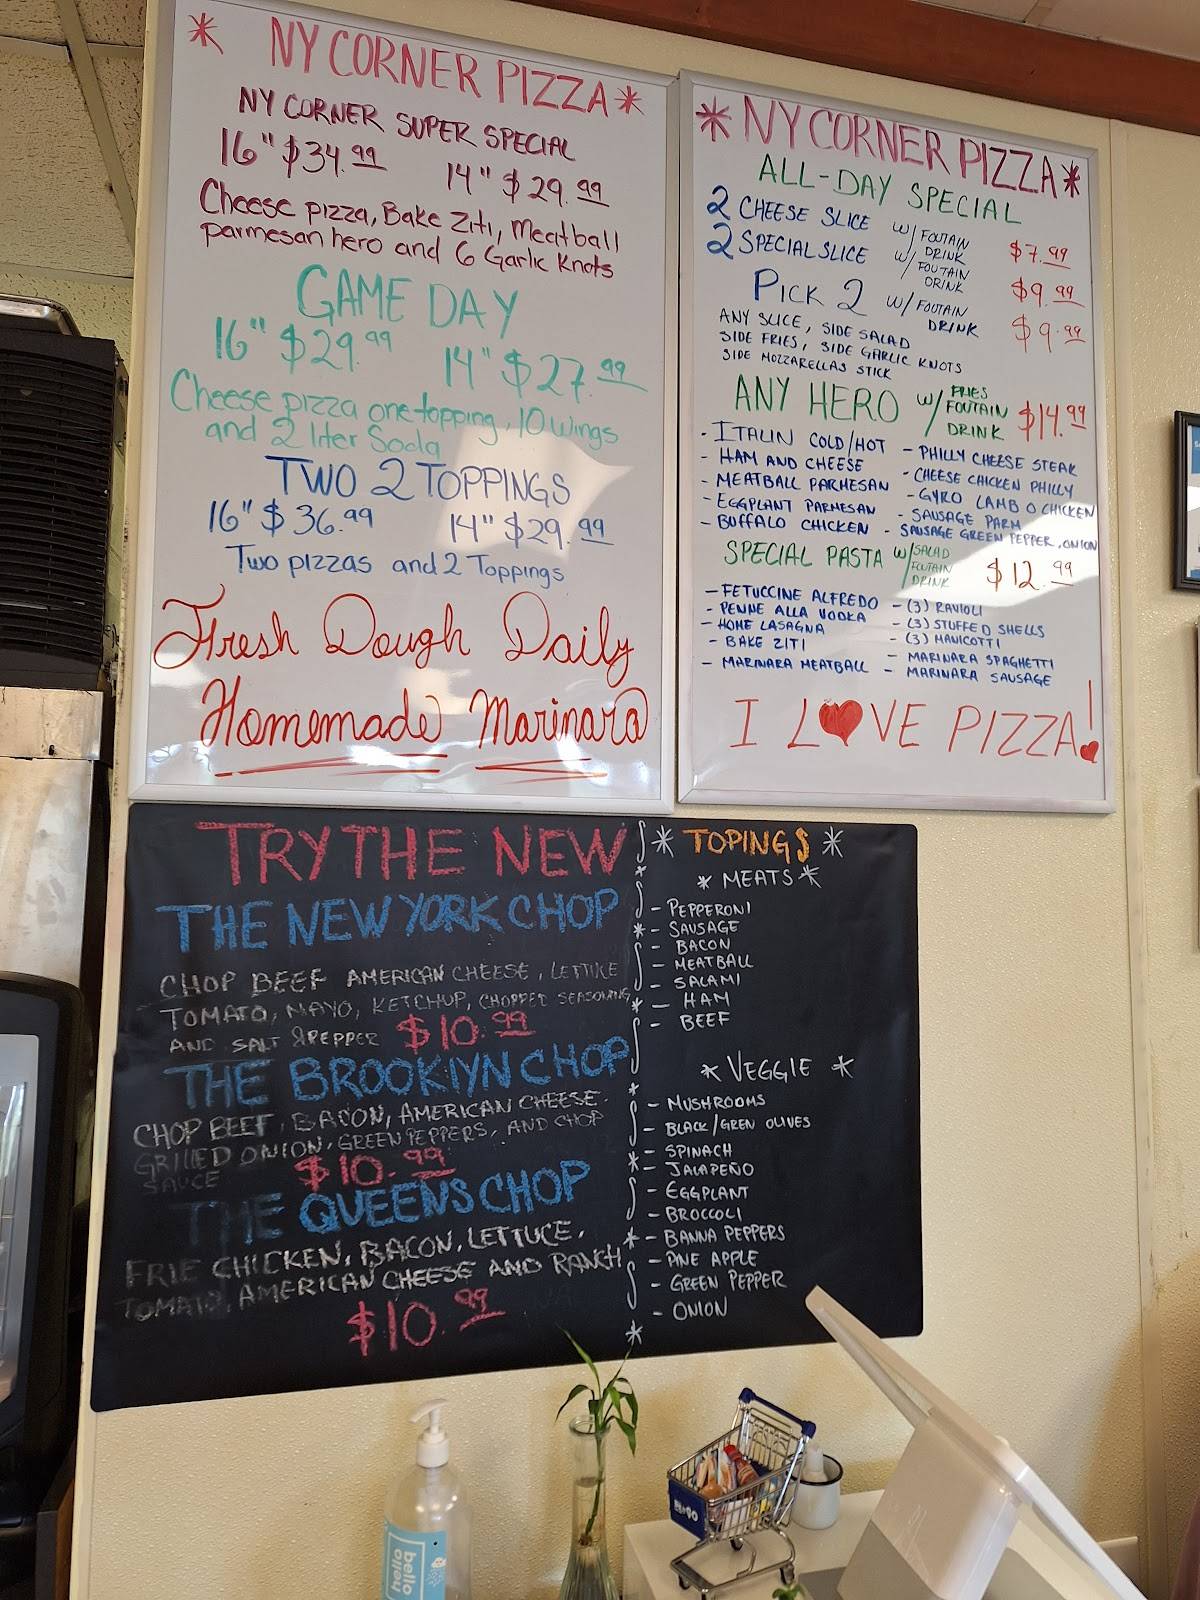 * NY CORNER PIZZA *
NY CORNER SUPER SPECIAL
16" $34.99 14" $29.99
Cheese pizza, Bake Ziti, Meatball
parmesan hero and 6 Garlic Knots
GAME DAY
16" $29.99 14" $27.99
Cheese pizza one topping, 10 wings
and 2 liter Soda
TWO 2 TOPPINGS
16" $36.99 14" $29.99
Two pizzas and 2 Toppings
Fresh Dough Daily
Homemade Marinara
* NY CORNER PIZZA *
ALL-DAY SPECIAL
2 CHEESE SLICE W/ FOUTAIN DRINK $7.99
2 SPECIAL SLICE W/ FOUTAIN DRINK $9.99
PICK 2 W/ FOUTAIN DRINK $9.99
ANY SLICE, SIDE SALAD
SIDE FRIES, SIDE GARLIC KNOTS
SIDE MOZZARELLAS STICK
ANY HERO W/ FRIES FOUTAIN DRINK $14.99
- ITALIN COLD/HOT
- HAM AND CHEESE
- MEATBALL PARMESAN
- EGGPLANT PARMESAN
- BUFFALO CHICKEN
- PHILLY CHEESE STEAK
- CHEESE CHICKEN PHILLY
- GYRO LAMB O CHICKEN
- SAUSAGE PARM
- SAUSAGE GREEN PEPPER, ONION
SPECIAL PASTA W/ SALAD FOUTAIN DRINK $12.99
- FETUCCINE ALFREDO
- PENNE ALLA VODKA
- HOME LASAGNA
- BAKE ZITI
- MARINARA MEATBALL
- (3) RAVIOLI
- (3) STUFFED SHELLS
- (3) MANICOTTI
- MARINARA SPAGHETTI
- MARINARA SAUSAGE
I L♥VE PIZZA!
TRY THE NEW
THE NEW YORK CHOP
CHOP BEEF AMERICAN CHEESE, LETTUCE
TOMATO, MAYO, KETCHUP, CHOPPED SEASONING
AND SALT & PEPPER $10.99
THE BROOKLYN CHOP
CHOP BEEF, BACON, AMERICAN CHEESE.
GRILLED ONION, GREEN PEPPERS, AND CHOP
SAUCE $10.99
THE QUEENS CHOP
FRIE CHICKEN, BACON, LETTUCE,
TOMATO, AMERICAN CHEESE AND RANCH
$10.99
* TOPINGS *
* MEATS *
- PEPPERONI
- SAUSAGE
- BACON
- MEATBALL
- SALAMI
- HAM
- BEEF
* VEGGIE *
- MUSHROOMS
- BLACK/GREN OLIVES
- SPINACH
- JALAPEÑO
- EGGPLANT
- BROCCOLI
- BANNA PEPPERS
- PINE APPLE
- GREEN PEPPER
- ONION
hello
hello